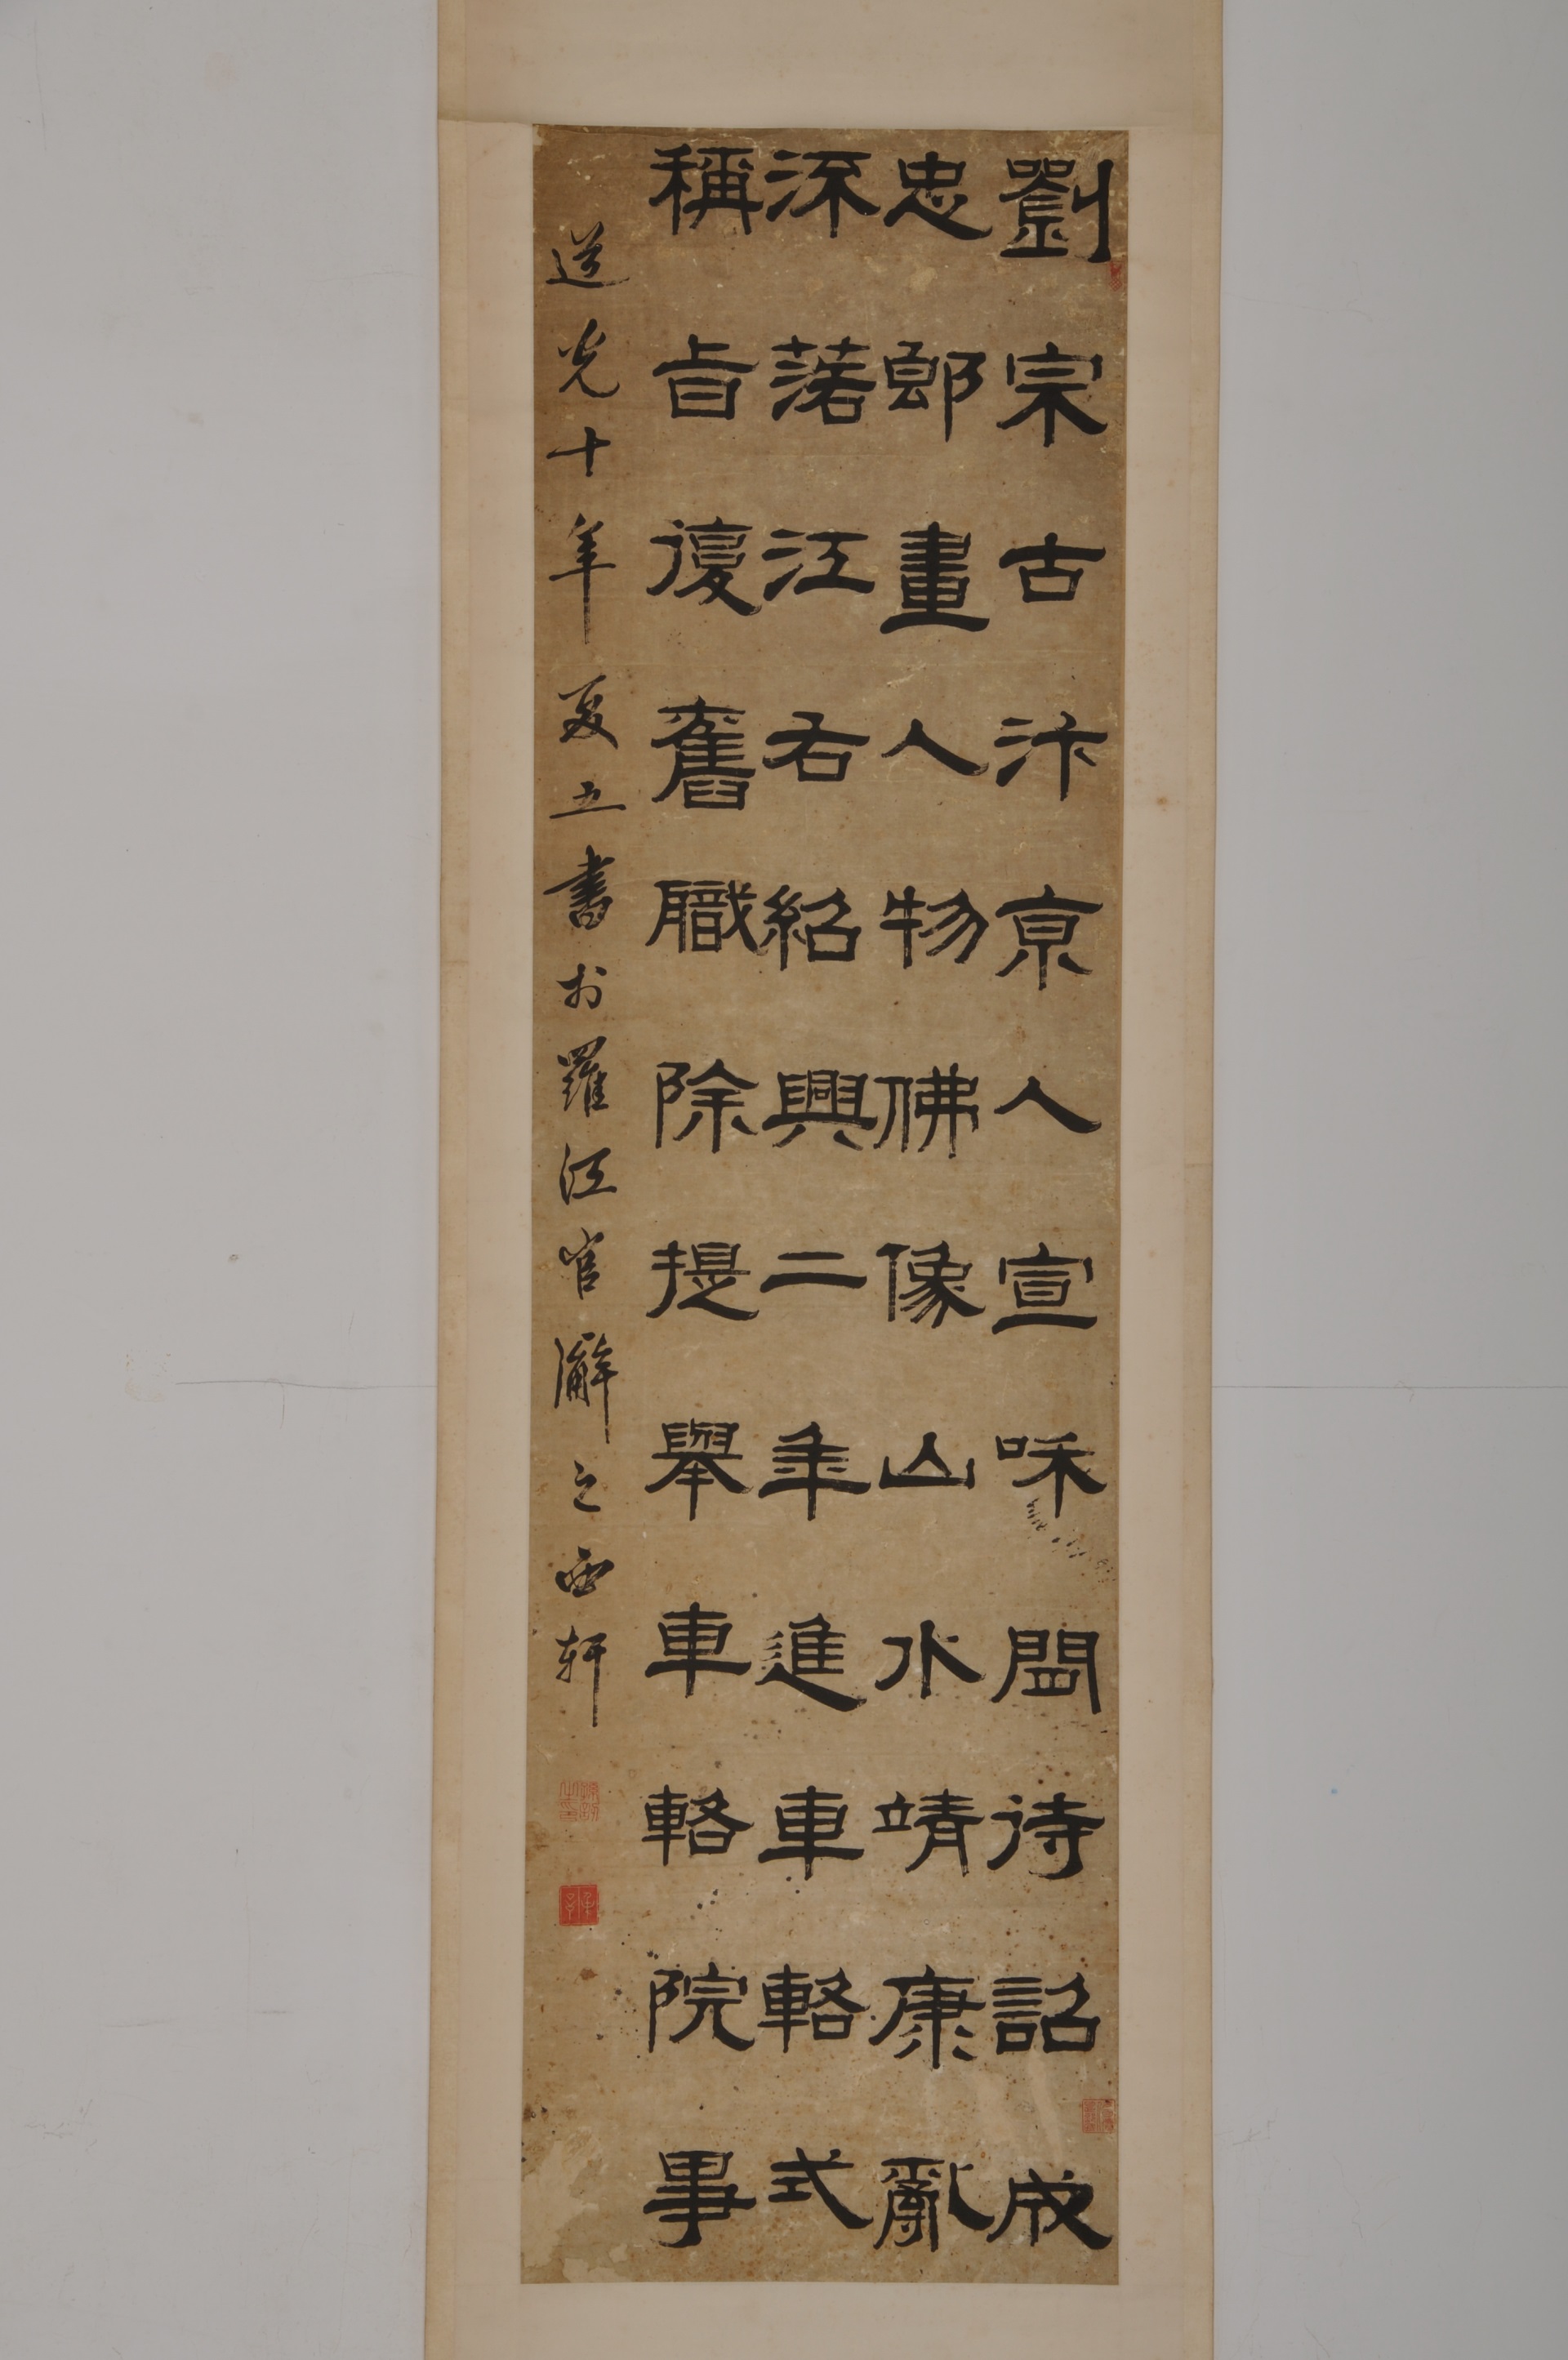 劉宗古汴京人宣和間待詔成
忠郎畫人物佛像山水靖康亂
流落江右紹興二年進車輅式
稱旨復舊職除提舉車輅院事
道光十年夏五書於羅江官廨之西軒